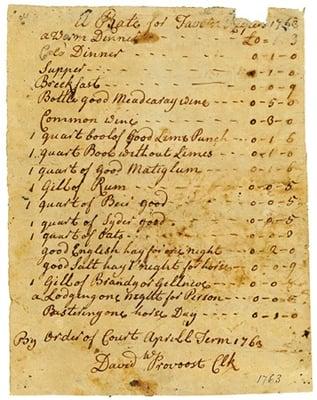 A Rate for Tavern 1763
a Warm Dinner £0 1 3
Cold Dinner 0-1-0
Supper 0-1-0
Breekfast 0-0-9
Bottle good Meadearay wine 0-5-0
Common wine 0-3-0
1 quart bool of good Lime Punch 0-1-6
1 quart Bool without Limes 0-1-0
1 quart of good Matiglum 0-1-6
1 Gill of Rum 0-0-5
1 quart of Beir good 0-0-5
1 quart of Syder good 0-0-5
1 quart of Oats 0-0-3
good English hay for one night 0-2-0
good Salt hay 1 night for horse 0-0-9
1 Gill of Brandy or 0-0-6
a Lodging one Night for Person 0-0-
Pastering one horse Day 0-1-0
By Order of Court Aprill Term 1763
David Wm Provoost Clk
1763